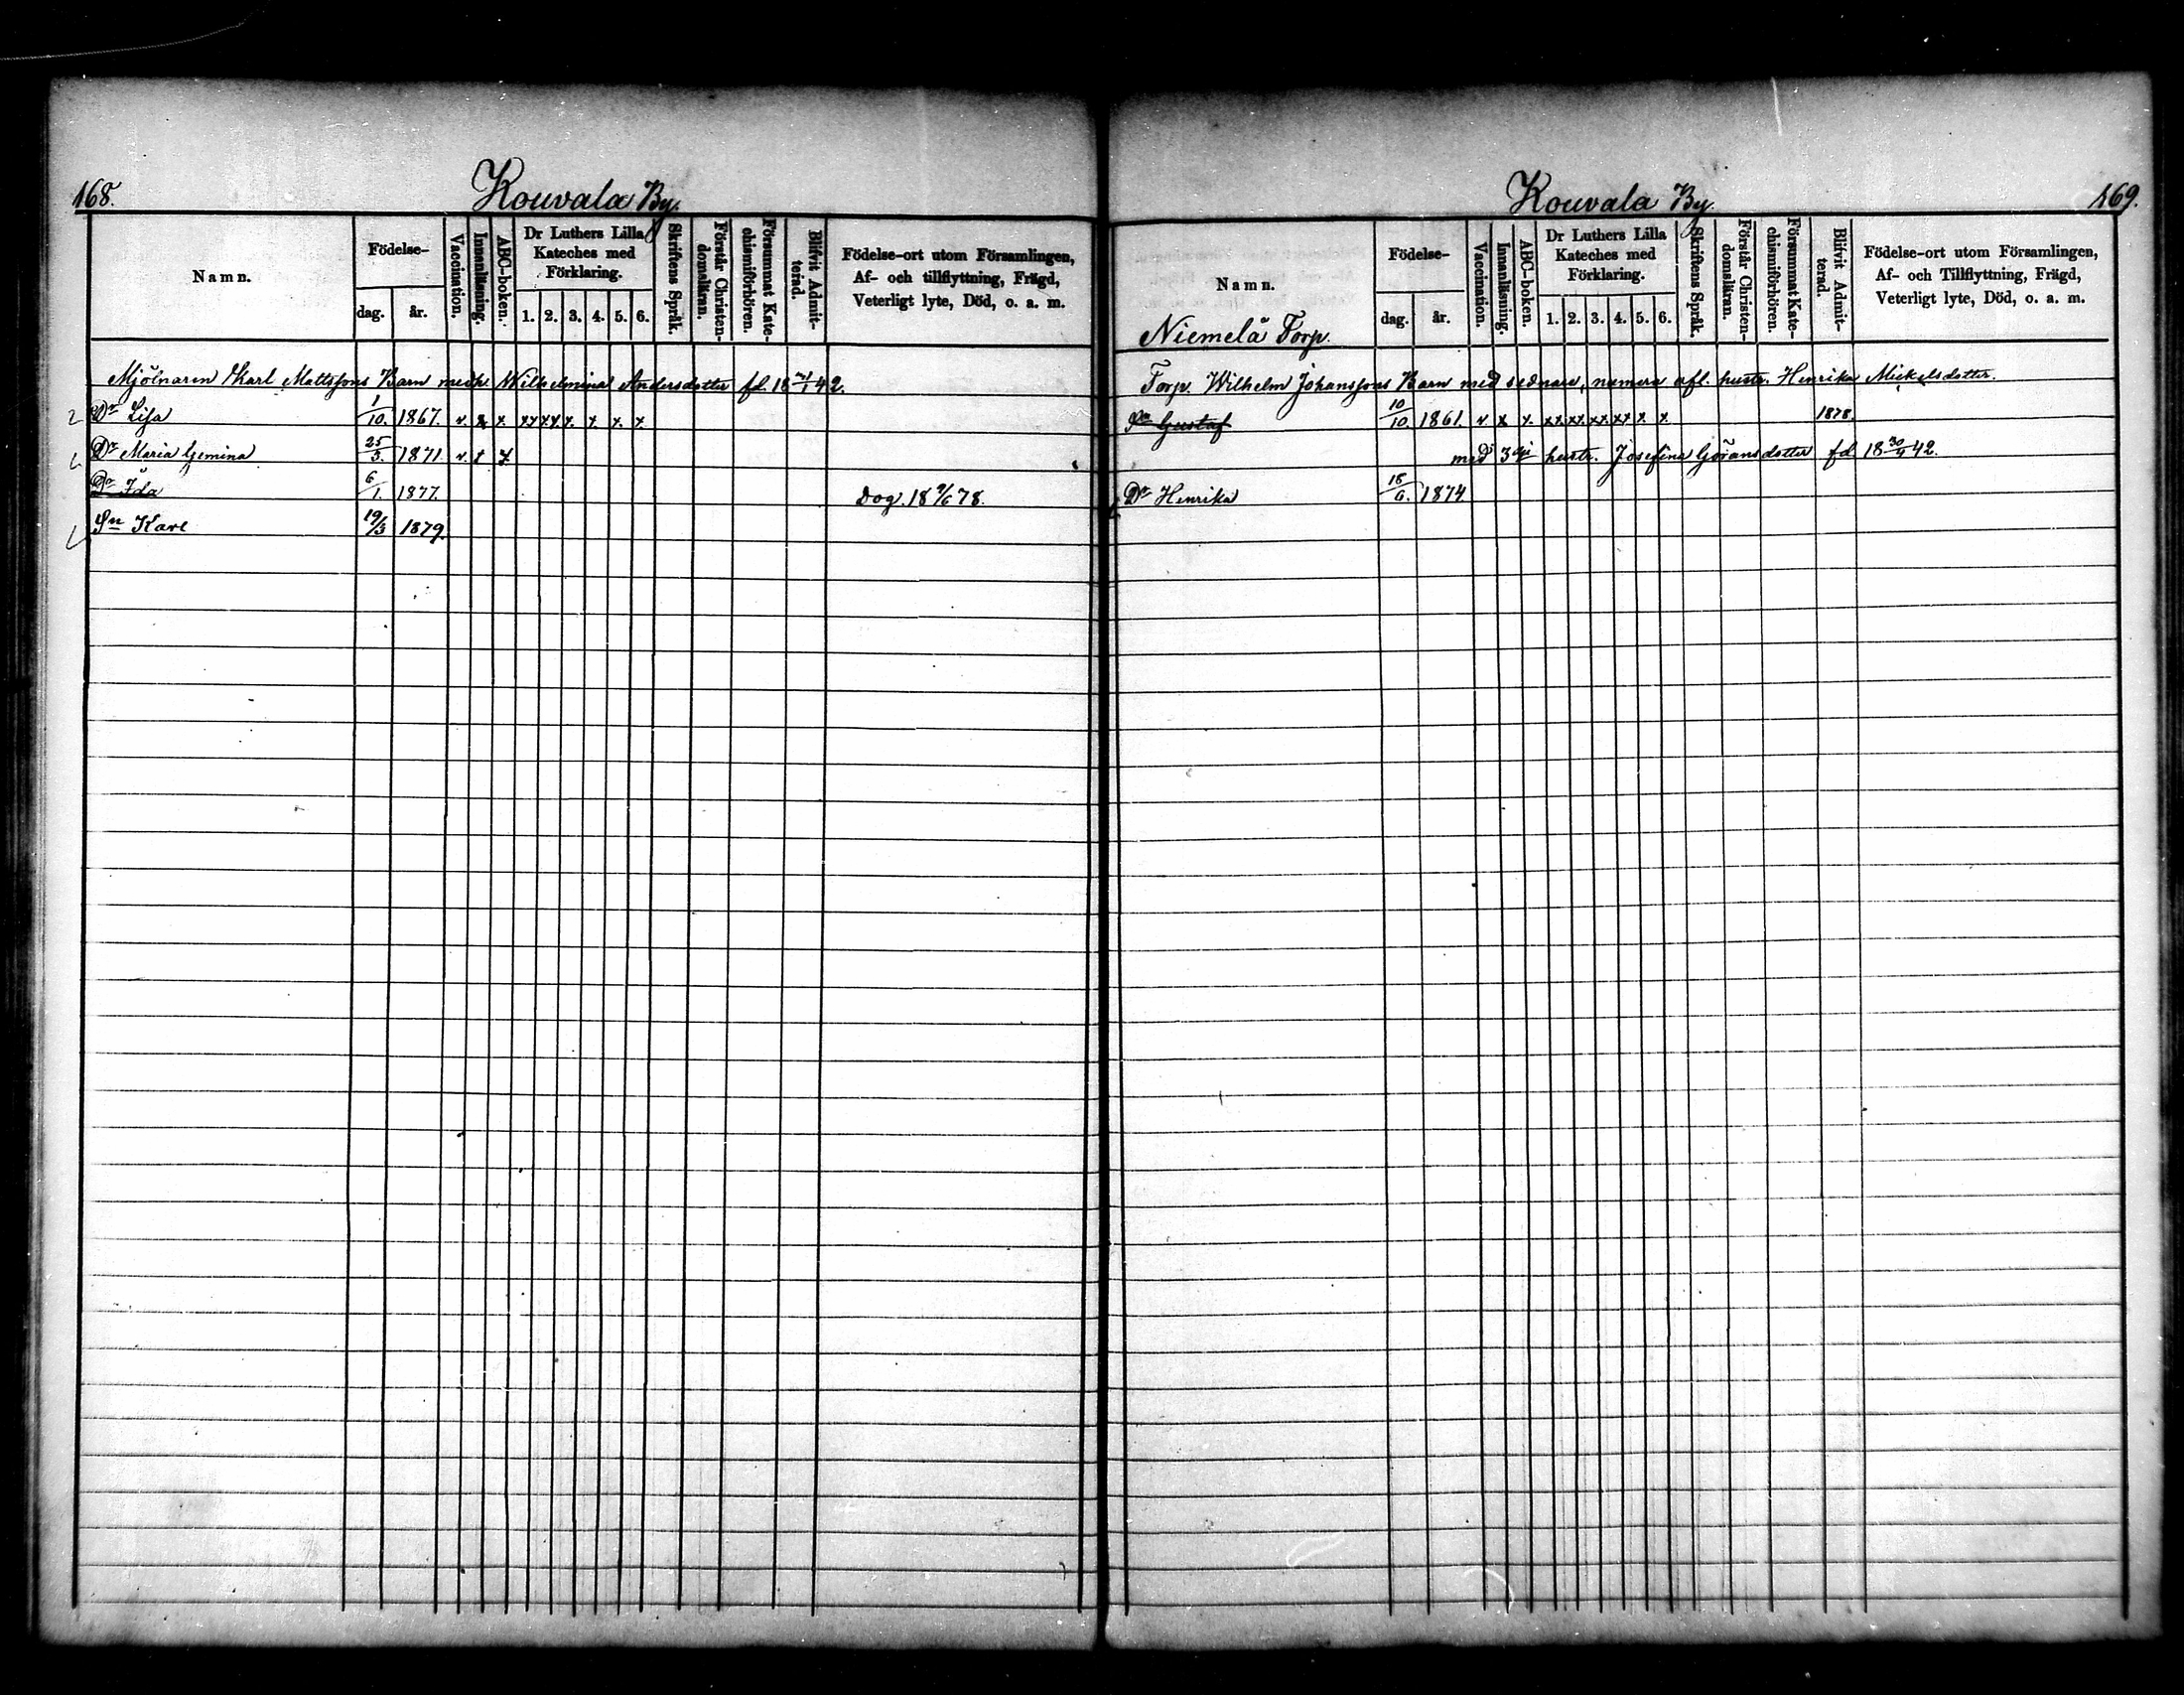 168.
Kouvala By.
Namn.
Födelse-
dag.
år.
Vaccination.
Innanläsning.
ABC-boken.
Dr Luthers Lilla
Kateches med
Förklaring.
1. 2. 3. 4. 5. 6.
Skriftens Språk.
Förstår Christen-
domsläran.
Försummat Kate-
chismiförhören.
Blifvit Admit-
terad.
Födelse-ort utom Församlingen,
Af- och tillflyttning, Frägd,
Veterligt lyte, Död, o. a. m.
Mjölnaren Karl Mattssons Barn med Wilhelmina Andersdotter fd. 18 42.
Dr Lisa 1/10. 1867. v. x x. xx xx x. x. x. x.
Dr Maria Gemina 25/3. 1871 v. x x
Dr Ida 6/1. 1877. Dog. 18 9/6 78.
Sn Karl 19/3 1879.
Kouvala By.
169.
Namn.
Niemelä Torp.
Födelse-
dag.
år.
Vaccination.
Innanläsning.
ABC-boken.
Dr Luthers Lilla
Kateches med
Förklaring.
1. 2. 3. 4. 5. 6.
Skriftens Språk.
Förstår Christen-
domsläran.
Försummat Kate-
chismiförhören.
Blifvit Admit-
terad.
Födelse-ort utom Församlingen,
Af- och Tillflyttning, Frägd,
Veterligt lyte, Död, o. a. m.
Torp. Wilhelm Johanssons Barn med sednare, numera afl. hustr. Henrika Mickelsdotter.
Sn Gustaf 10/10. 1861. v x x. xx. xx. xx. xx x. x. 1878.
med 3dji hustr. Josefina Göransdotter fd 18 30/9 42.
Dr Henrika 18/6. 1874